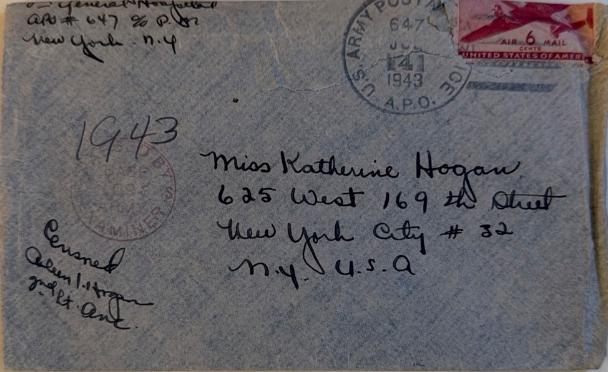 General Hospital
APO # 647 % P.M.
New York. N.Y
U.S. ARMY POSTAL SERVICE
647
14
1943
A.P.O.
AIR 6 MAIL
CENTS
UNITED STATES OF AMERICA
1943
BY
EXAMINER
Miss Katherine Hogan
625 West 169 th Street
New York City # 32
N.Y. U.S.A
Censored
Aileen I. Hogan
2nd Lt. ANC.